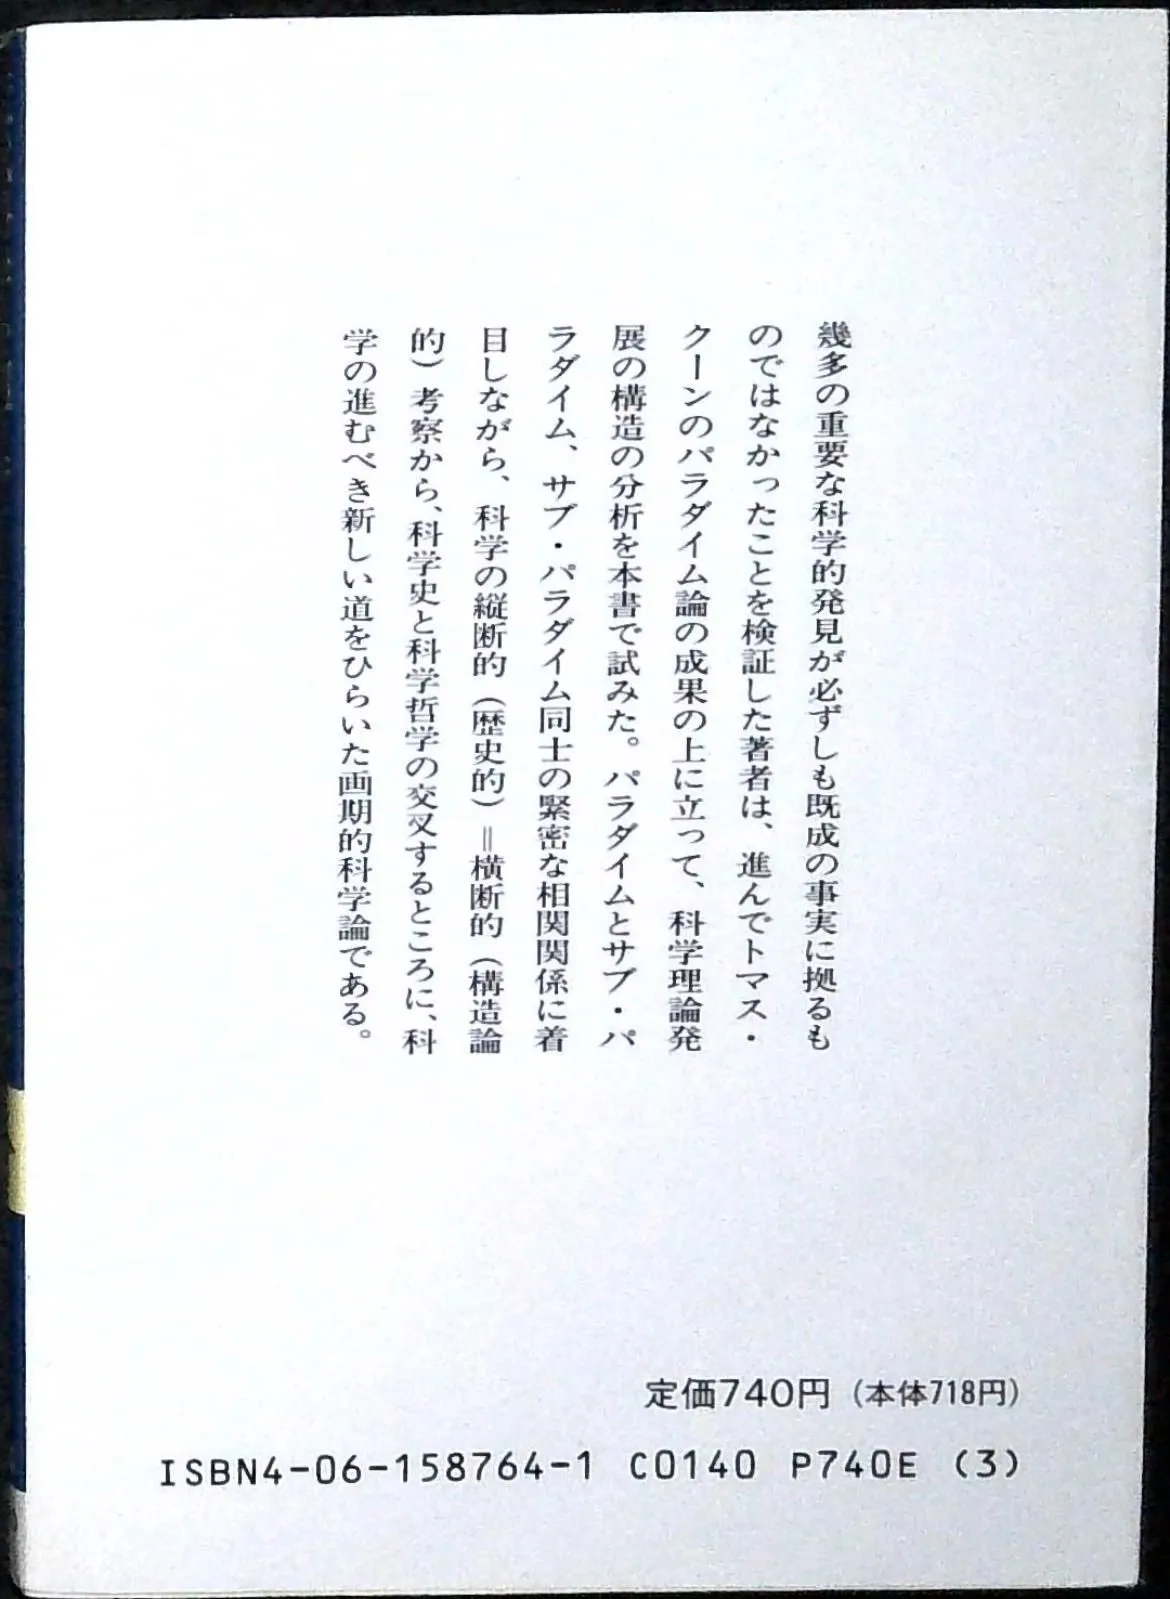 幾多の重要な科学的発見が必ずしも既成の事実に拠るも
のではなかったことを検証した著者は、進んでトマス・
クーンのパラダイム論の成果の上に立って、科学理論発
展の構造の分析を本書で試みた。パラダイムとサブ・パ
ラダイム、サブ・パラダイム同士の緊密な相関関係に着
目しながら、科学の縦断的（歴史的）＝横断的（構造論
的）考察から、科学史と科学哲学の交叉するところに、科
学の進むべき新しい道をひらいた画期的科学論である。
定価740円（本体718円）
ISBN4-06-158764-1 C0140 P740E (3)